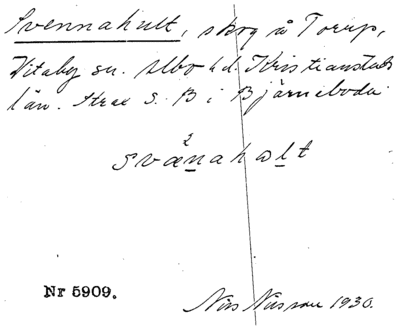 Svennahult, skog å Torup,
Vitaby sn. Albo hd. Kristianstads
län. Strax S. B i Bjärneboda.
2
svænahalt
Nr 5909.
Nils Nilsson 1930.